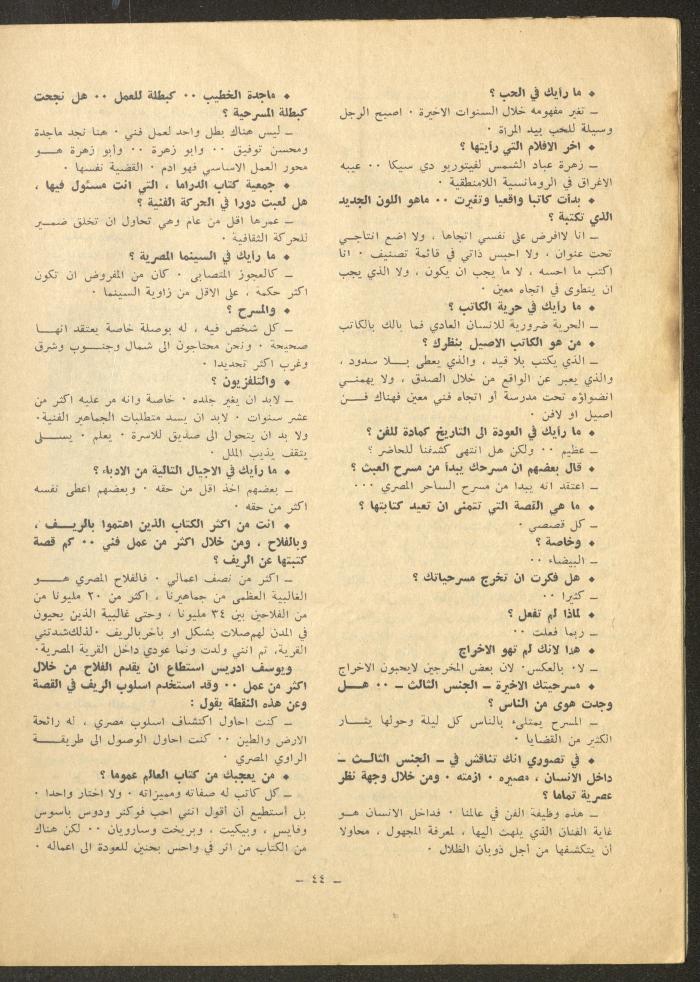 ● ما رأيك في الحب ؟
ــ تغير مفهومه خلال السنوات الاخيرة ٠ اصبح الرجل
وسيلة للحب بيد المرأة ٠
● اخر الافلام التي رأيتها ؟
ــ زهرة عباد الشمس لفيتوريو دي سيكا ٠٠ عيبه
الاغراق في الرومانسية اللامنطقية ٠
● بدأت كاتبا واقعيا وتغيرت ٠٠ ماهو اللون الجديد
الذي تكتبة ؟
ــ انا لاافرض على نفسي اتجاها ، ولا اضع انتاجــي
تحت عنوان ، ولا احبس ذاتي في قائمة تصنيف ٠ انا
اكتب ما احسه ، لا ما يجب ان يكون ، ولا الذي يجب
ان ينطوى في اتجاه معين ٠
● ما رأيك في حرية الكاتب ؟
ــ الحرية ضرورية للانسان العادي فما بالك بالكاتب
● من هو الكاتب الاصيل بنظرك ؟
ــ الذي يكتب بلا قيد ، والذي يعطى بـــلا سدود ،
والذي يعبر عن الواقع من خلال الصدق ، ولا يهمنــي
انضواؤه تحت مدرسة أو اتجاه فني معين فهناك فـــن
اصيل او لافن ٠
● ما رأيك في العودة الى التاريخ كمادة للفن ؟
ــ عظيم ٠٠ ولكن هل انتهى كشفنا للحاضر ؟
● قال بعضهم ان مسرحك يبدأ من مسرح العبث ؟
ــ اعتقد انه يبدا من مسرح الساحر المصري ٠٠٠
● ما هي القصة التي تتمنى ان تعيد كتابتها ؟
ــ كل قصصي ٠
● وخاصة ؟
ــ البيضاء ٠٠
● هل فكرت ان تخرج مسرحياتك ؟
ــ كثيرا ٠٠
● لماذا لم تفعل ؟
ــ ربما فعلت ٠٠
● هذا لانك لم تهو الاخراج
ــ لا٠ بالعكس٠ لان بعض المخرجين لايحبون الاخراج
● مسرحيتك الاخيرة ــ الجنس الثالث ــ ٠٠ هـــل
وجدت هوى من الناس ؟
ــ المسرح يمتلىء بالناس كل ليلة وحولها يثـــار
الكثير من القضايا ٠
● في تصوري انك تناقش في ــ الجنس الثالــث ــ
داخل الانسان ، مصيره ٠ ازمته ٠ ومن خلال وجهة نظر
عصرية تماما ؟
ــ هذه وظيفة الفن في عالمنا ٠ فداخل الانسان هــو
غاية الفنان الذي يلهث اليها ، لمعرفة المجهول ، محاولا
أن يتكشفها من أجل ذوبان الظلال ٠
● ماجدة الخطيب ٠٠ كبطلة للعمل ٠٠ هل نجحت
كبطلة المسرحية ؟
ــ ليس هناك بطل واحد لعمل فني ٠ هنا نجد ماجدة
ومحسن توفيق ٠٠ وابو زهرة ٠٠ وأبو زهرة هـــو
محور العمل الاساسي فهو ادم ٠ القضية نفسها ٠
● جمعية كتاب الدراما ، التي انت مسئول فيها ،
هل لعبت دورا في الحركة الفنية ؟
ــ عمرها اقل من عام وهي تحاول ان تخلق ضمــير
للحركة الثقافية ٠
● ما رأيك في السينما المصرية ؟
ــ كالعجوز المتصابى ٠ كان من المفروض ان تكون
اكثر حكمة ، على الاقل من زاوية السينما ٠
● والمسرح ؟
ــ كل شخص فيه ، له بوصلة خاصة يعتقد انهـــا
صحيحة ٠ ونحن محتاجون الى شمال وجنــوب وشرق
وغرب اكثر تحديدا ٠
● والتلفزيون ؟
ــ لابد ان يغير جلده ٠ خاصة وانه مر عليه اكثر من
عشر سنوات ٠ لابد ان يسد متطلبات الجماهير الفنية٠
ولا بد ان يتحول الى صديق للاسرة ٠ يعلم ٠ يســـلى
يثقف يذيب الملل ٠
● ما رأيك في الاجيال التالية من الادباء ؟
ــ بعضهم اخذ اقل من حقه ٠ وبعضهم اعطى نفسه
اكثر من حقه ٠
● انت من اكثر الكتاب الذين اهتموا بالريــف ،
وبالفلاح ، ومن خلال اكثر من عمل فني ٠٠ كم قصة
كتبتها عن الريف ؟
ــ اكثر من نصف اعمالي ٠ فالفلاح المصري هـــو
الغالبية العظمى من جماهيرنا ، اكثر من ٢٠ مليونا من
من الفلاحين بين ٣٤ مليونا ، وحتى غالبية الذين يحيون
في المدن لهم صلات بشكل او باخر بالريف ٠لذلك شدتني
القرية، ثم انني ولدت ونما عودي داخل القرية المصرية٠
ويوسف ادريس استطاع ان يقدم الفلاح من خلال
اكثر من عمل ٠٠ وقد استخدم اسلوب الريف في القصة
وعن هذه النقطة يقول :
ــ كنت احاول اكتشاف اسلوب مصري ، له رائحة
الارض والطين ٠٠ كنت احاول الوصول الى طريقـــة
الراوي المصري ٠
● من يعجبك من كتاب العالم عموما ؟
ــ كل كاتب له صفاته ومميزاته ٠ ولا اختار واحدا ٠
بل أستطيع أن أقول انني احب فوكنر ودوس باسوس
وفايس ، وبيكيت ، وبريخت وسارويان ٠٠ لكن هناك
من الكتاب من اثر في واحس بحنين للعودة الى اعماله ٠
ــ ٤٤ ــ